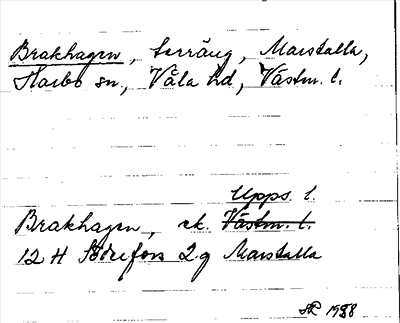 Brakhagen, terräng, Marstalla,
Harbo sn., Våla hd, Västm. l.
Upps. l.
Brakhagen, ek. Västm. l.
12 H Söderfors 2g Marstalla
1988